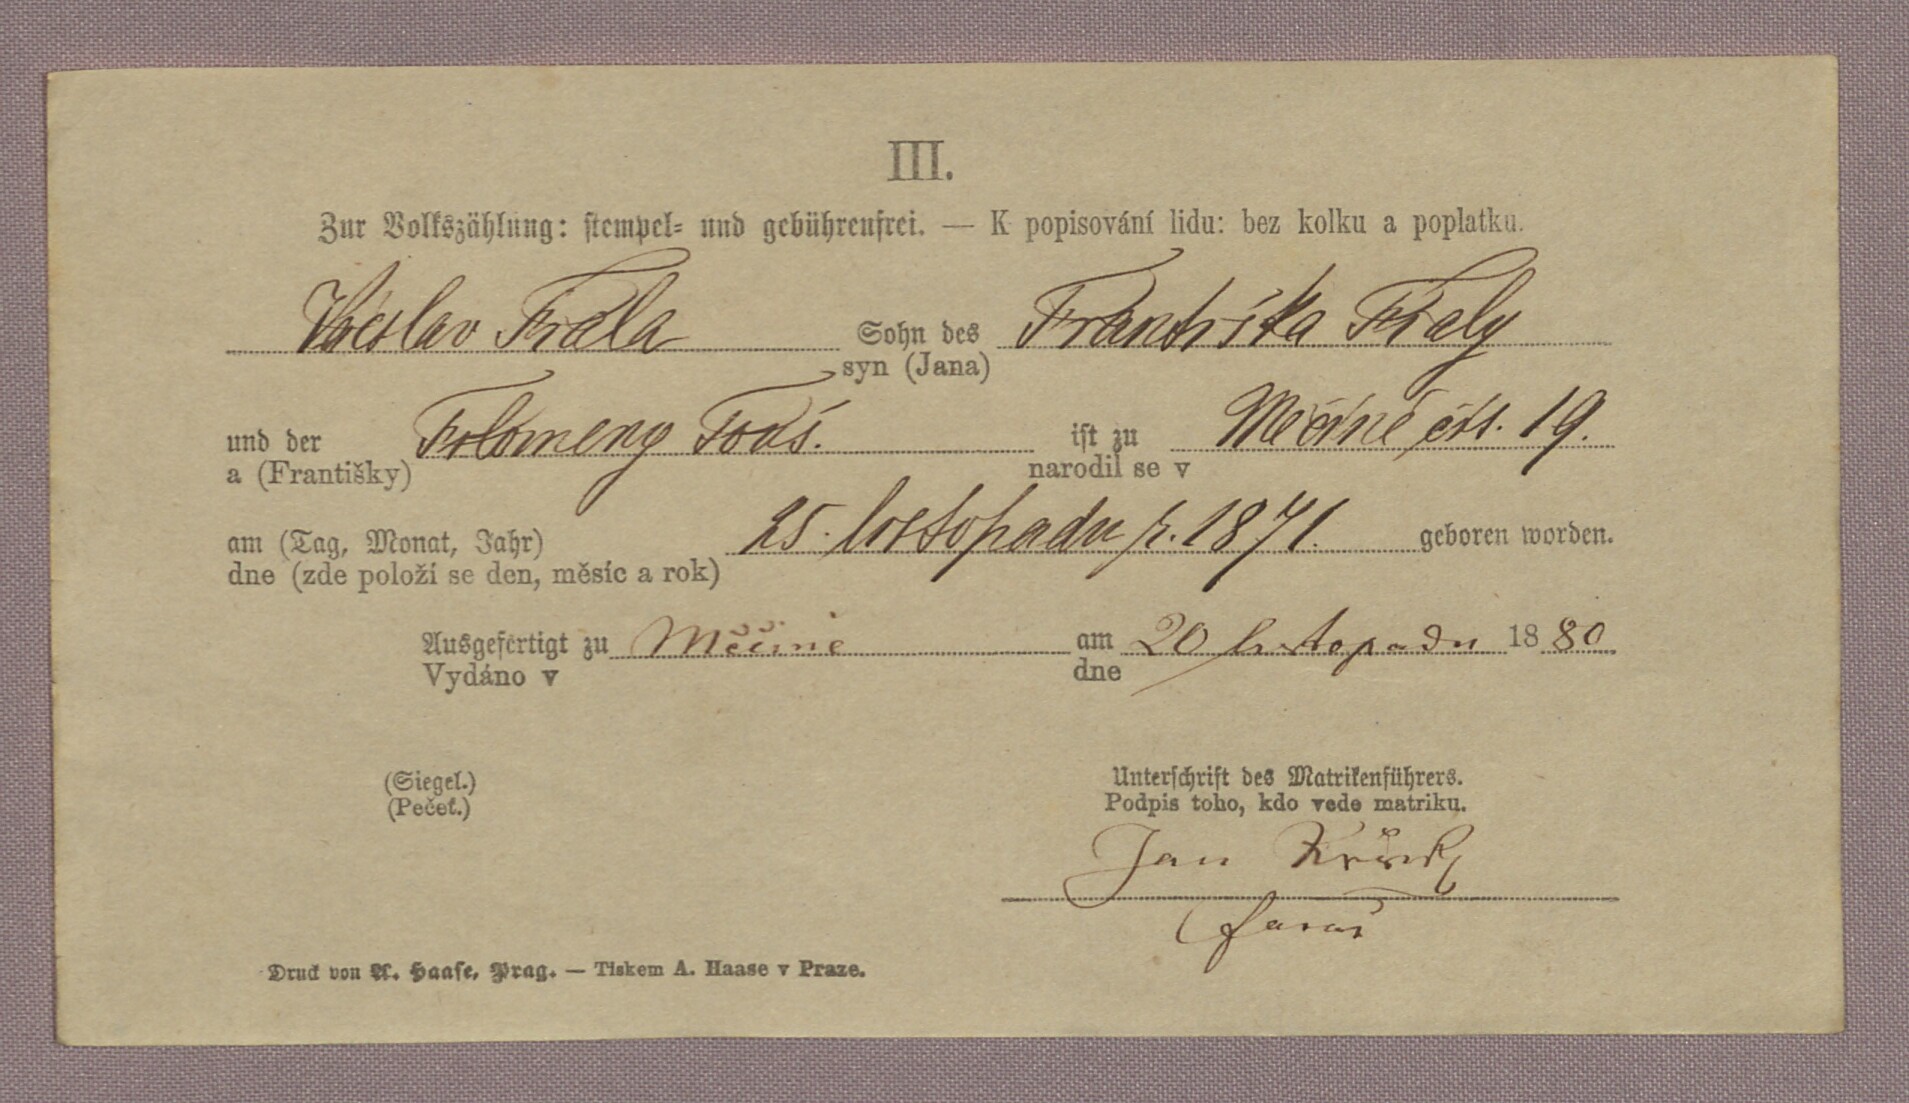 III.
Zur Volkszählung: stempel- und gebührenfrei. — K popisování lidu: bez kolku a poplatku.
Sohn des Františka
syn (Jana)
und der ist zu Měčíně čís. 19.
a (Františky) narodil se v
am (Tag, Monat, Jahr) 25. listopadu r. 1871. geboren worden.
dne (zde položí se den, měsíc a rok)
Ausgefertigt zu Měčíně am 20 listopadu 1880
Vydáno v dne
(Siegel.) Unterschrift des Matrikenführers.
(Pečeť.) Podpis toho, kdo vede matriku.
Jan
farář
Druck von A. Haase, Prag. — Tiskem A. Haase v Praze.